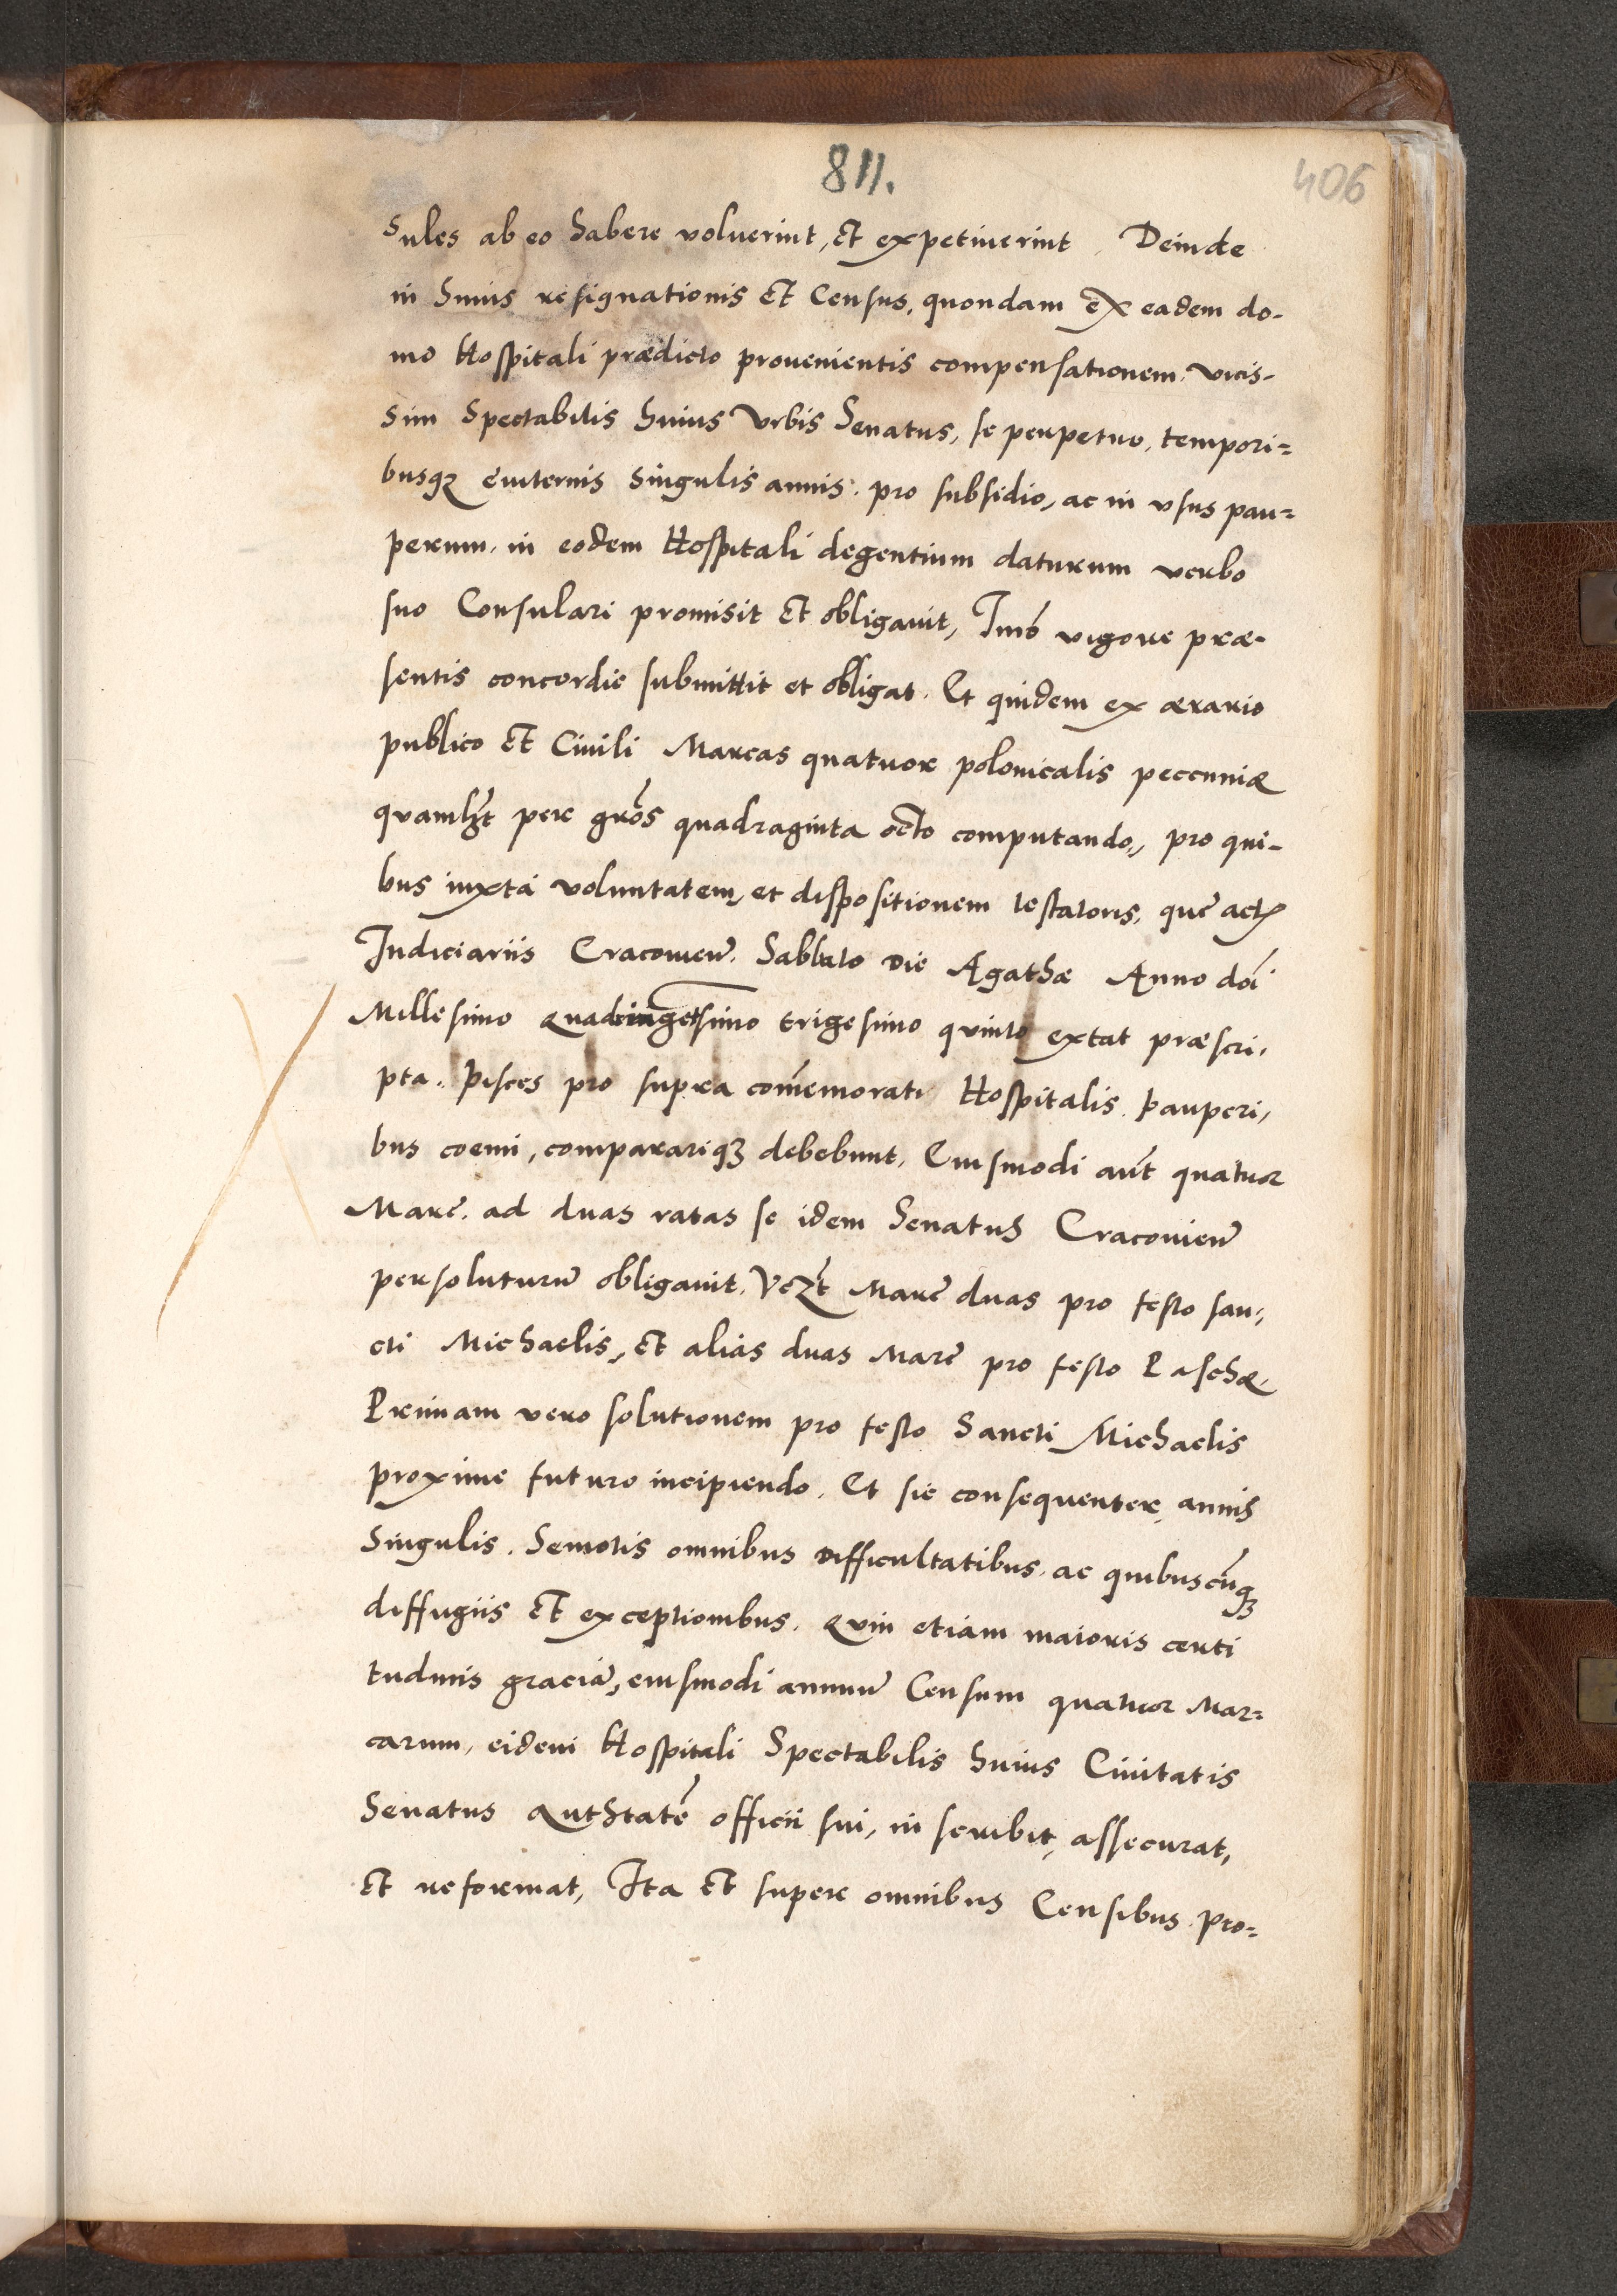 811.
406
sules ab eo habere voluerint, et expetiuerint. Deinde
in huius resignationis et Census, quondam ex eadem do-
mo Hospitali prædicto prouenientis compensationem, vicis-
sim Spectabilis huius Vrbis Senatus, se perpetuo, tempori=
busqȝ euiternis singulis annis. pro subsidio, ac in vsus pau=
perum, in eodem Hospitali degentium daturum verbo
suo Consulari promisit et obligauit, Imo vigore præ-
sentis concordie submittit et obligat. Et quidem ex ærario
publico et Ciuili Marcas quatuor polonicalis peccuniæ
quamlȝt per gros quadraginta octo computando,, pro qui-
bus iuxta voluntatem, et dispositionem testatoris, quę actꝭ
Iudiciariis Cracouień. Sabbato die Agathæ Anno doi
Millesimo quadringetsimo trigesimo quinto extat præscri,
pta. Pisces pro supra comemorati Hospitalis pauperi,
bus coemi, compararíqȝ debebunt, Eiusmodi aut quatuor
Marc̃. ad duas ratas se idem Senatus Cracouień
persoluturũ obligauit. Vczt Marc̃ duas pro festo san,
cti Michaelis, et alias duas Marc̃ pro festo Paschæ.
Primam vero solutionem pro festo Sancti Michaelis
proxime futuro incipiendo. Et sic consequenter, annis
singulis. Semotis omnibus difficultatibus, ac quibuscũqȝ
diffugiis et exceptionibus. Quin etiam maioris certi
tudinis gracia, eiusmodi annuũ Censum quatuor Mar=
carum, eidem Hospitali Spectabilis huius Ciuitatis
Senatus authtatẽ officii sui, in scribit, assecurat,
et reformat, Ita et super omnibus Censibus pro=